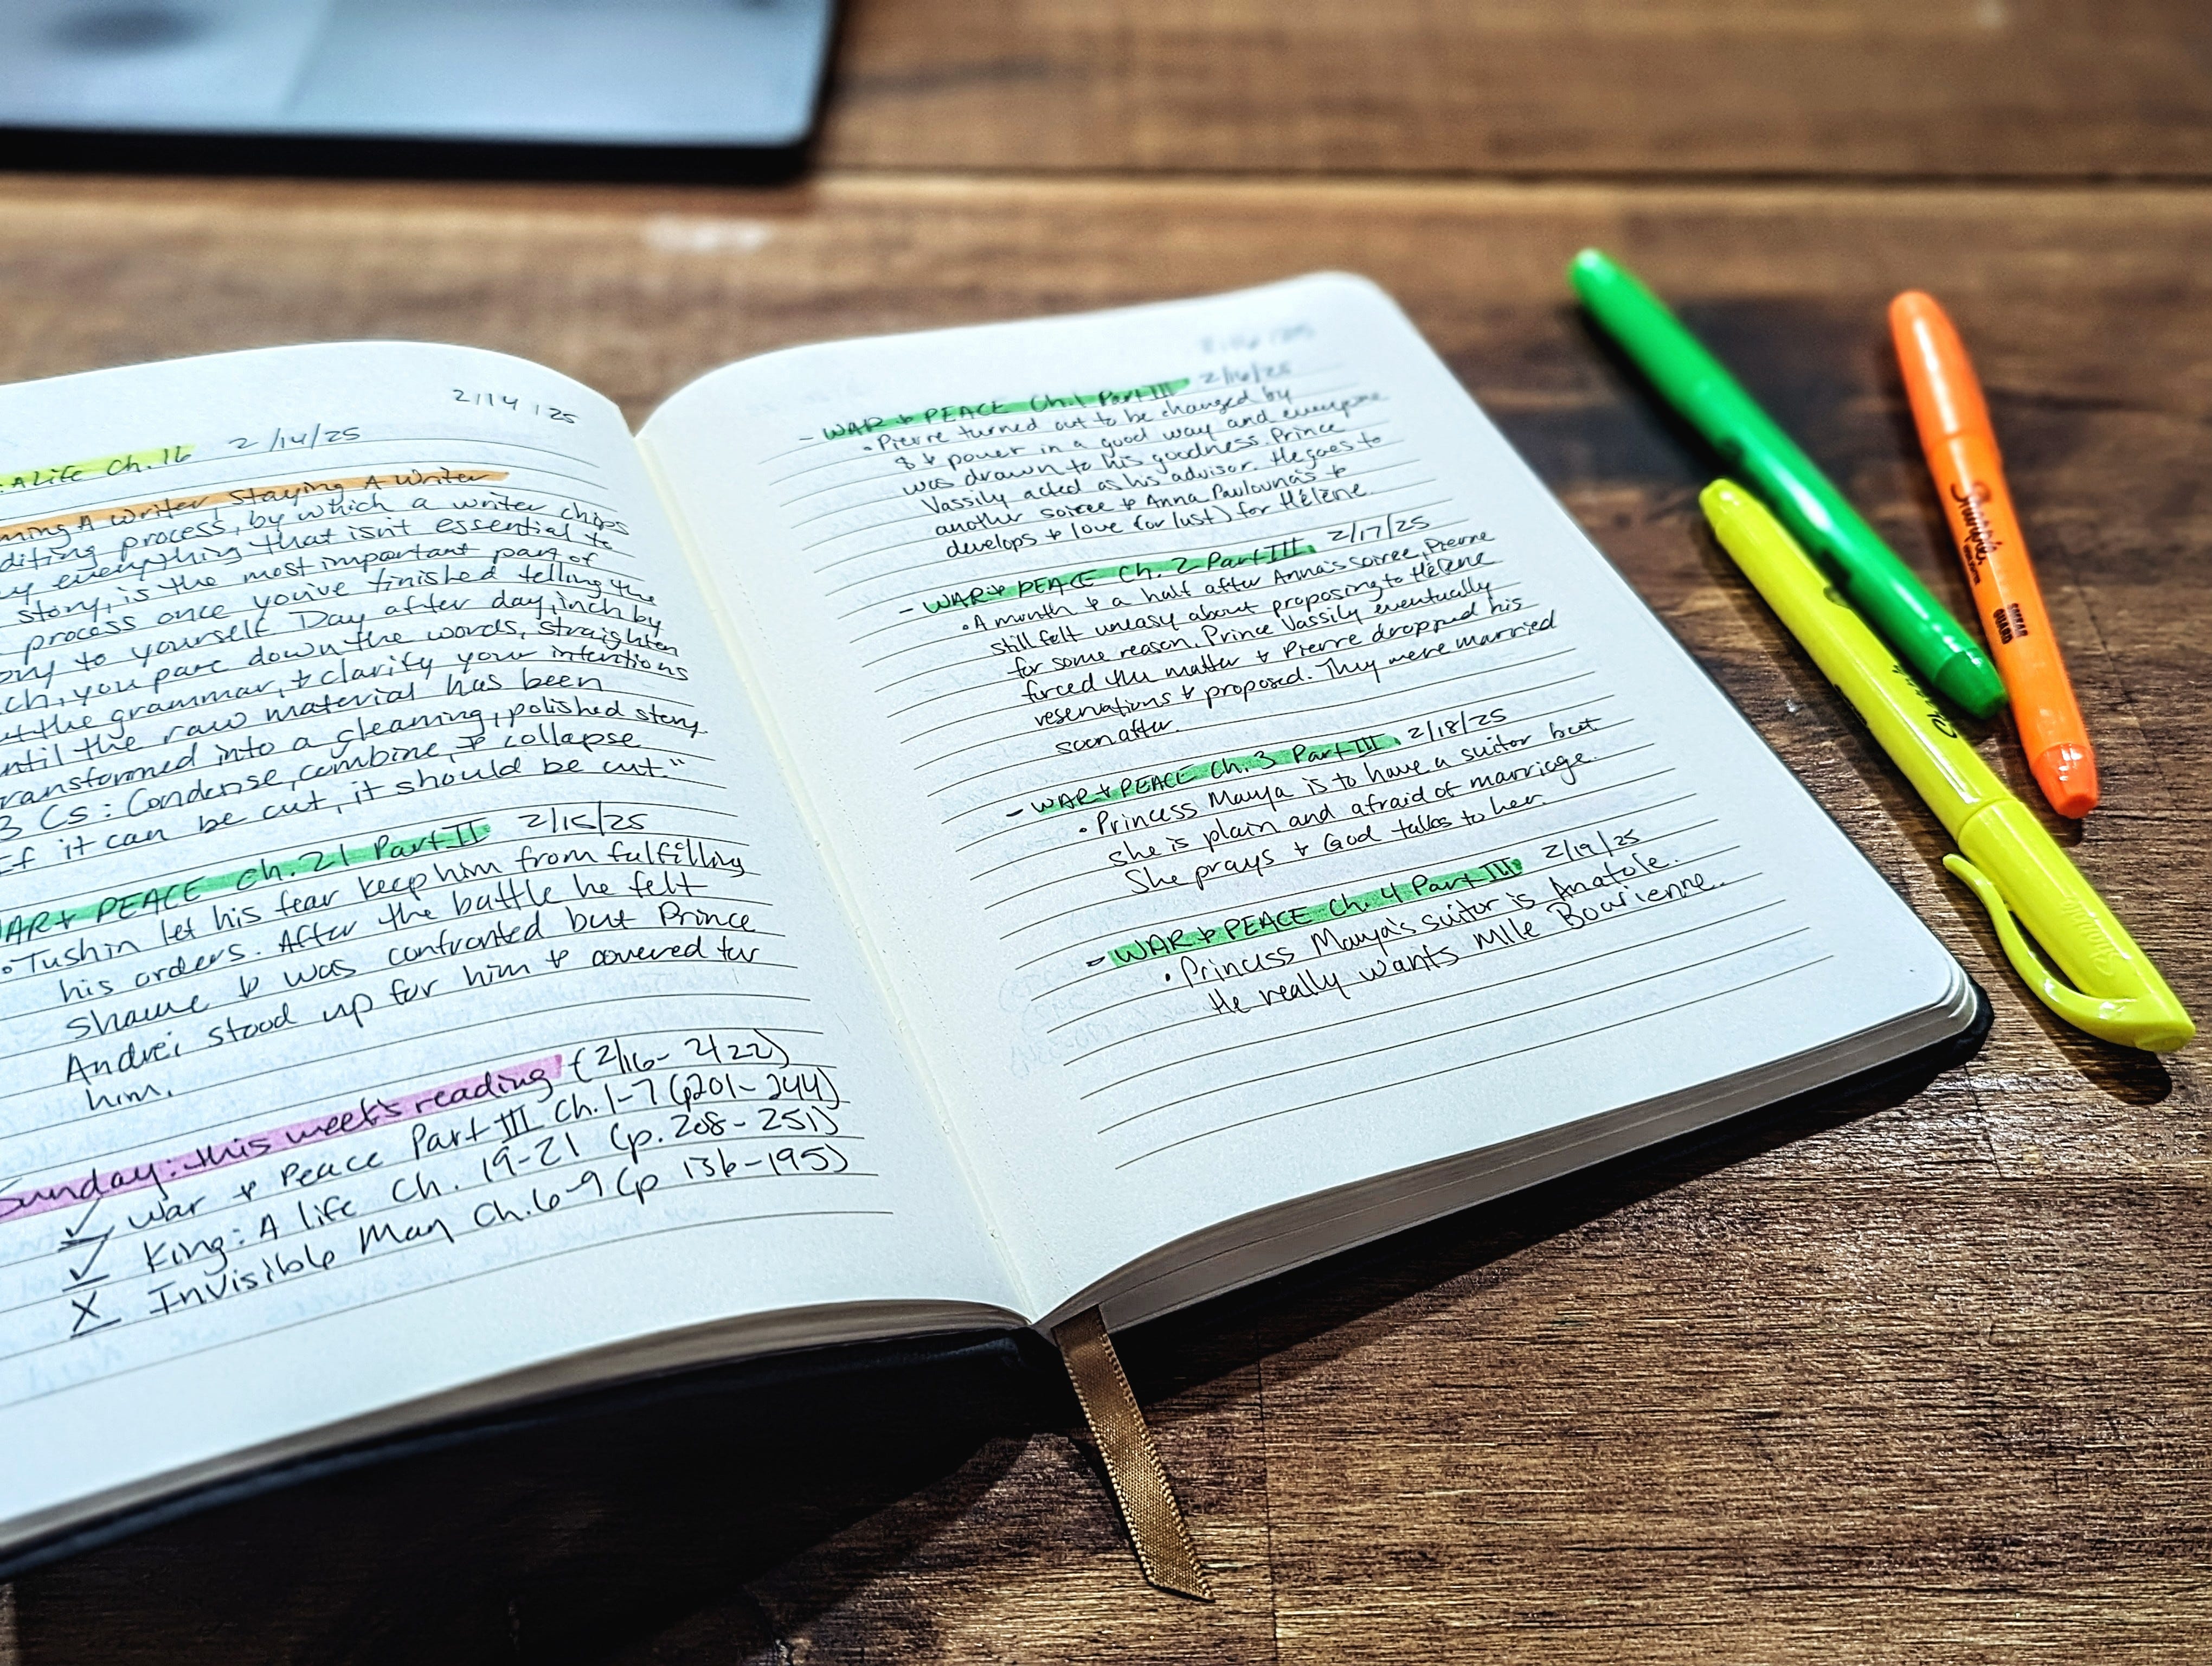 2/14/25
: A Life Ch. 16 2/14/25
ming A Writer, Staying A Writer
diting process, by which a writer chips
y everything that isn't essential to
story, is the most important part of
process once you've finished telling the
ory to yourself. Day after day, inch by
ch, you pare down the words, straighten
ut the grammar, & clarify your intentions
ntil the raw material has been
ransformed into a gleaming, polished story
3 Cs: Condense, combine, & collapse
If it can be cut, it should be cut."
WAR & PEACE Ch. 21 Part II 2/15/25
• Tushin let his fear keep him from fulfilling
his orders. After the battle he felt
shame & was confronted but Prince
Andrei stood up for him & covered for
him.
Sunday: this week's reading (2/16-2/22)
✓ War & Peace Part III Ch. 1-7 (p201-244)
✓ King: A life Ch. 19-21 (p. 208-251)
X Invisible Man Ch. 6-9 (p 136-195)
- WAR & PEACE Ch. 1 Part III 2/16/25
• Pierre turned out to be changed by
$ & power in a good way and everyone
was drawn to his goodness. Prince
Vassily acted as his advisor. He goes to
another soiree & Anna Pavlovna's &
develops & love (or lust) for Hélène.
- WAR & PEACE Ch. 2 Part III 2/17/25
• A month & a half after Anna's soiree, Pierre
still felt uneasy about proposing to Hélène
for some reason. Prince Vassily eventually
forced the matter & Pierre dropped his
reservations & proposed. They were married
soon after.
- WAR & PEACE Ch. 3 Part III 2/18/25
• Princess Marya is to have a suitor but
she is plain and afraid of marriage.
She prays & God talks to her.
- WAR & PEACE Ch. 4 Part III 2/19/25
• Princess Marya's suitor is Anatole.
He really wants Mlle Bourienne.
Sharpie
SMEAR
GUARD
Sharpie
Sharpie